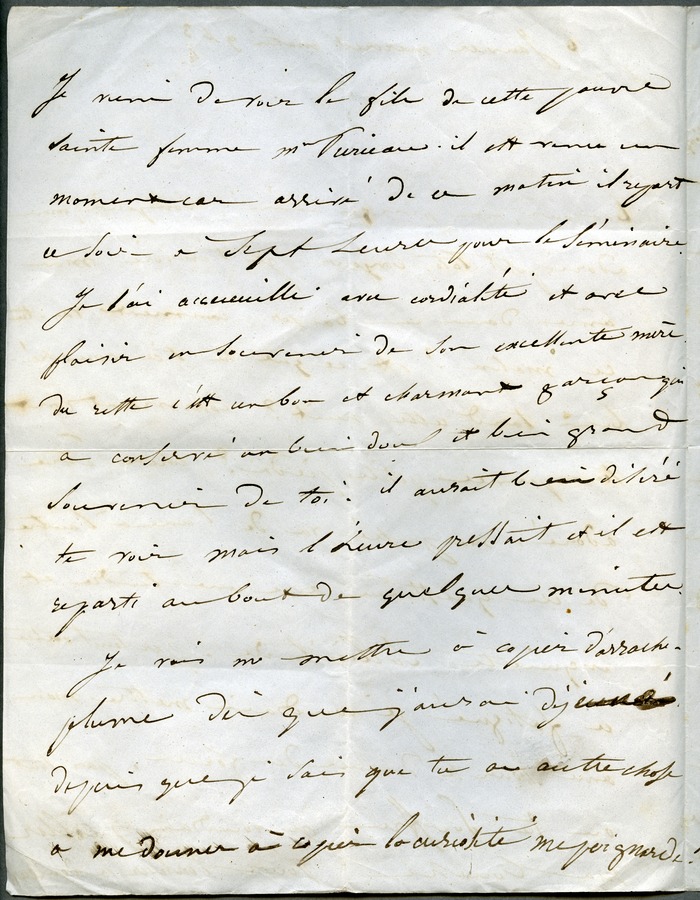 Je viens de voir le fils de cette pauvre
sainte femme mme Turieau. il est venu un
moment car arrivé de ce matin il repart
ce soir à sept heures pour le séminaire.
Je l'ai accueuilli avec cordialité et avec
plaisir en souvenir de son excellente mère.
du reste c'est un bon et charmant garçon qui
a conservé un bien doux et bien grand
souvenir de toi. il aurait bien désiré
te voir mais l'heure pressait et il est
reparti au bout de quelques minutes.
Je vais me mettre à copier d'arrache-
plume dès que j'aurai déjeuné.
depuis que je sais que tu as autre chose
à me donner à copier la curiosité me poignarde!